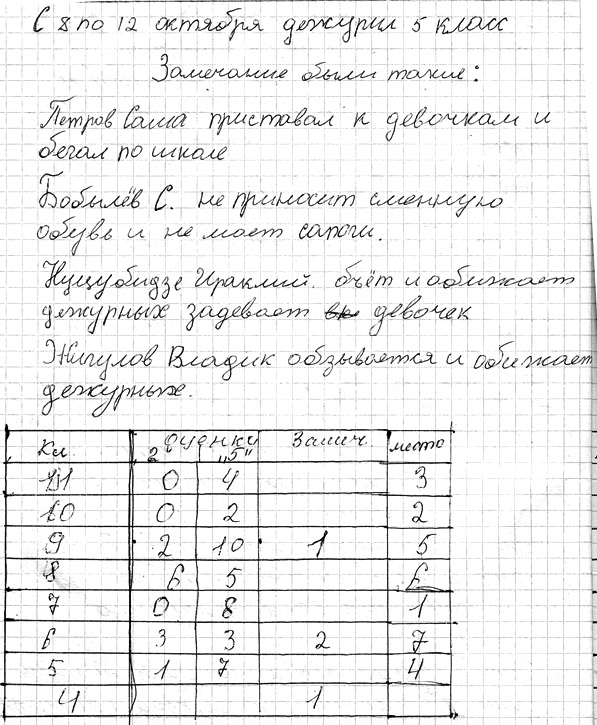 С 8 по 12 октября дежурил 5 класс
Замечание были такие:
Петров Саша приставал к девочкам и
бегал по школе
Бобылёв С. не приносит сменную
обувь и не моет сапоги.
Нуцубидзе Ираклий. бъёт и обижает
дежурных задевает девочек
Жигулов Владик обзывается и обижает
дежурных.
Кл оценки Замеч. место
2 "5"
11 0 4 3
10 0 2 2
9 2 10 1 5
8 6 5 6
7 0 8 1
6 3 3 2 7
5 1 7 4
4 1